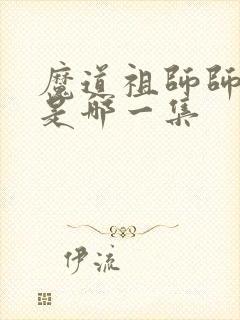 魔道祖师师
是哪一集
伊流